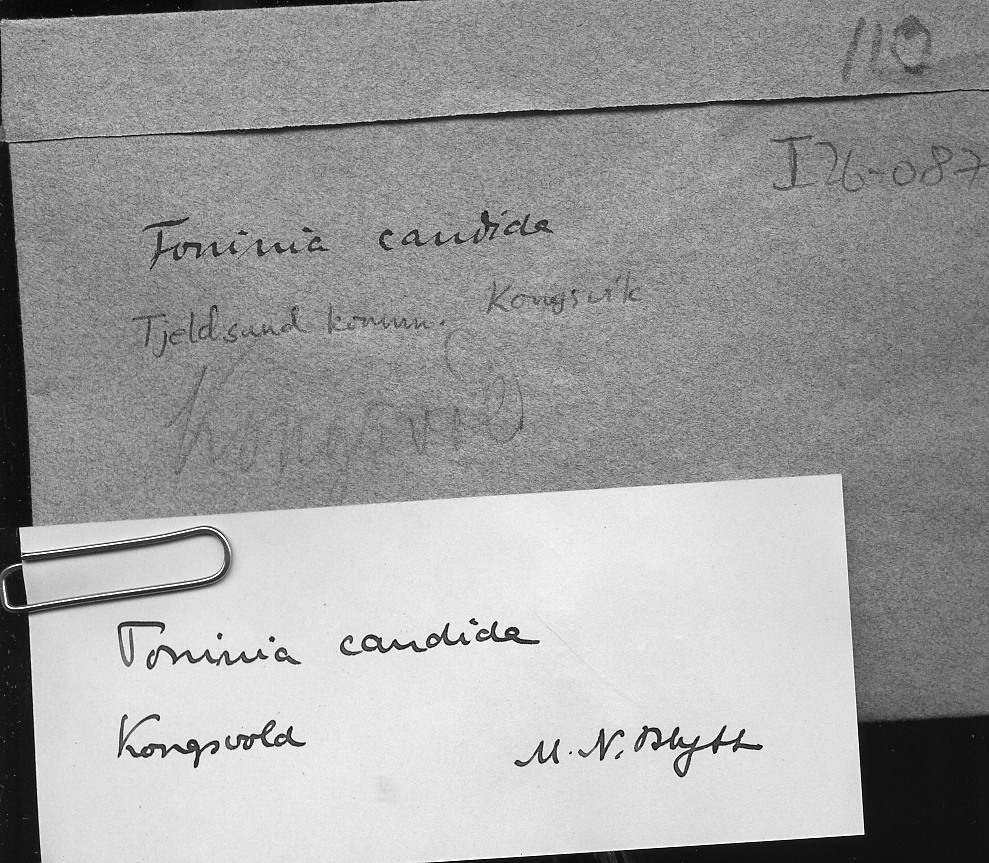 110
I26-087
Toninia candida
Tjeldsund komm. Kongsvik
Toninia candida
Kongsvold M. N. Blytt